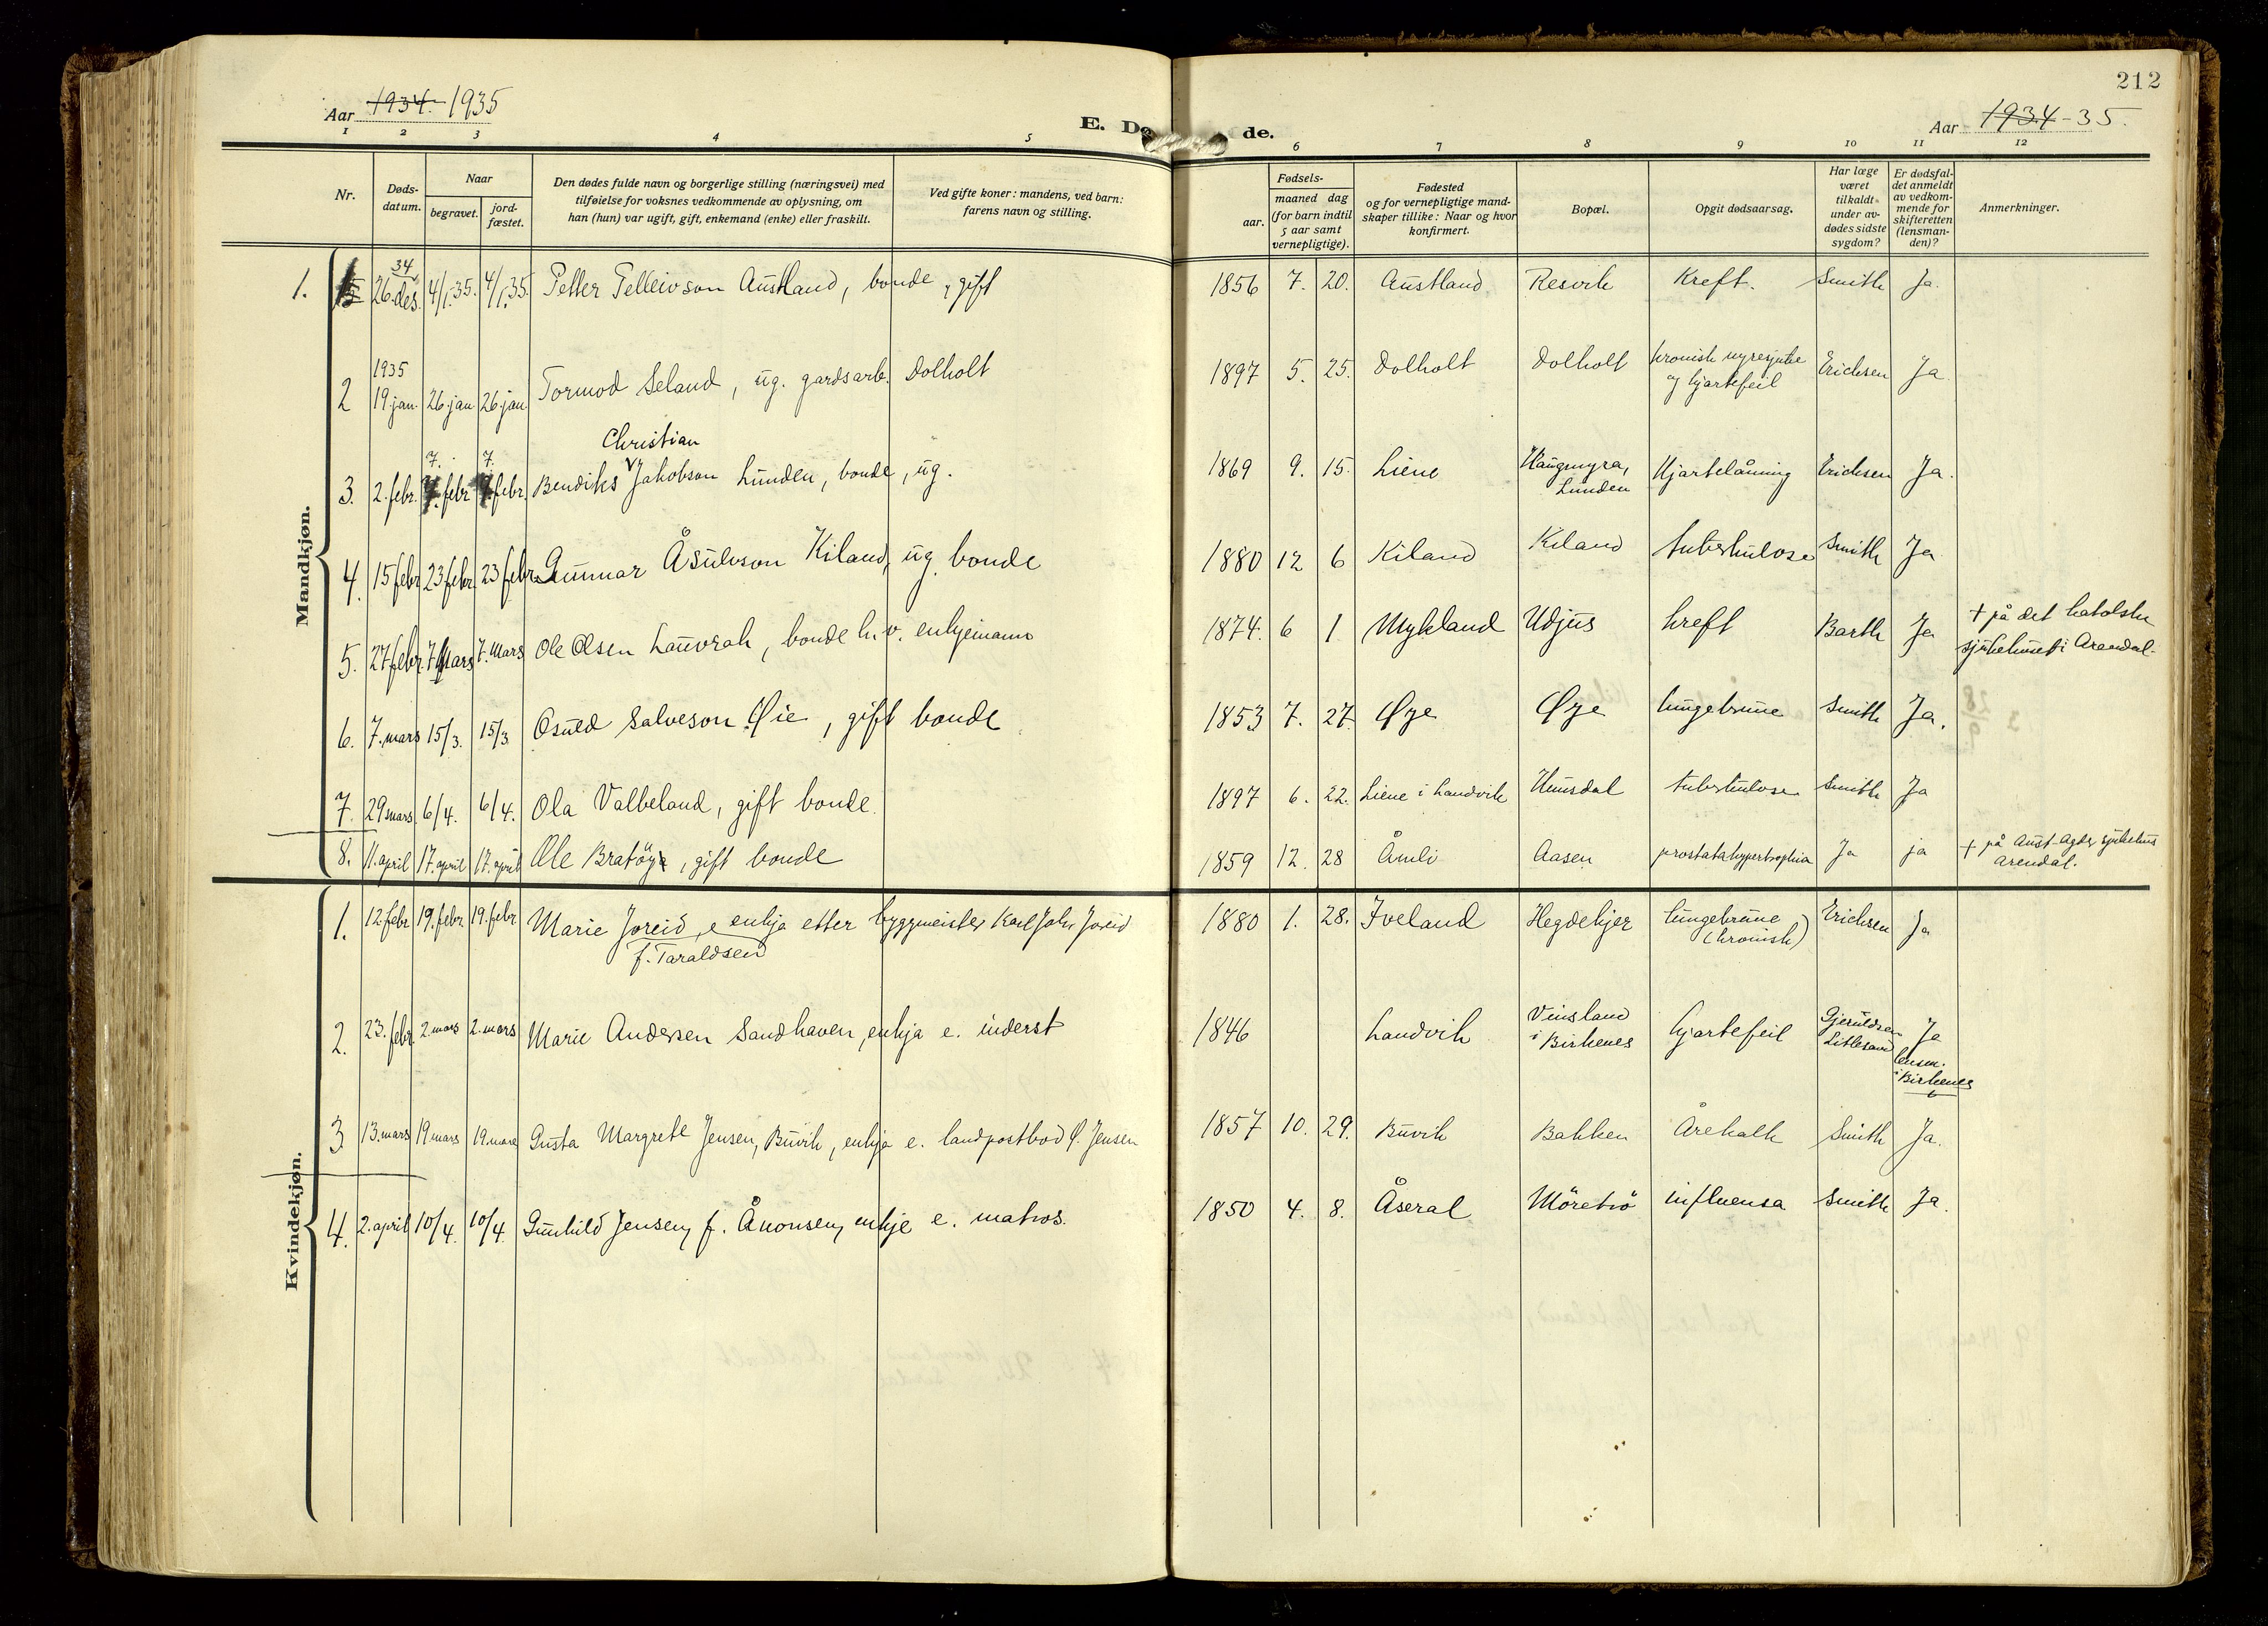 212
Aar 1934. 1935
E. De de.
Aar 1934-35.
1 2 3 4 5 6 7 8 9 10 11 12
Nr.
Døds-
datum.
Naar
begravet.
jord-
fæstet.
Den dødes fulde navn og borgerlige stilling (næringsvei) med
tilføielse for voksnes vedkommende av oplysning, om
han (hun) var ugift, gift, enkemand (enke) eller fraskilt.
Ved gifte koner: mandens, ved barn:
farens navn og stilling.
Fødsels-
aar.
maaned dag
(for barn indtil
5 aar samt
vernepligtige).
Fødested
og for vernepligtige mand-
skaper tillike: Naar og hvor
konfirmert.
Bopæl.
Opgit dødsaarsag.
Har læge
været
tilkaldt
under av-
dødes sidste
sygdom?
Er dødsfal-
det anmeldt
av vedkom-
mende for
skifteretten
(lensman-
den)?
Anmerkninger.
Mandkjøn.
34
1. 26.des. 4/1.35. 4/1.35. Petter Telleivson Austland, bonde, gift 1856 7. 20. Austland Resvik Kreft. Smith Ja.
1935
2 19.jan. 26.jan 26.jan Tormod Seland, ug. gardsarb. Dolholt 1897 5. 25. Dolholt Dolholt kronisk nyresjuke Erichsen Ja
og hjartefeil
Christian
7. 7.
3. 2.febr. febr febr. Bendiks Jakobson Lunden, bonde, ug. 1869 9. 15. Liene Haugmyra, Hjartelåmning Erichsen Ja.
Lunden
4. 15 febr 23.febr. 23 febr. Gunnar Åsulvson Kiland, ug. bonde 1880 12 6 Kiland Kiland tuberkulose Smith Ja
5. 27.febr. 7 Mars 7. Mars Ole Olsen Lauvrak, bonde h.v. enkjemann 1874. 6 1 Mykland Udjus kreft Barth Ja + på det katolske
sjukehuset i Arendal.
6. 7.mars 15/3. 15/3 Osuld Salveson Øie, gift bonde 1853 7. 27. Øye Øye lungebrune Smith Ja.
7. 29 mars. 6/4. 6/4. Ola Valbeland, gift bonde. 1897 6. 22. Liene i Landvik Humsdal tuberkulose Smith Ja
8. 11.april 17.april 17.april Ole Bratöy, gift bonde 1859 12. 28 Åmli Aasen prostatahypertrophia Ja ja + på Aust-Agder sjukehus
Arendal.
Kvindekjøn.
1. 12.febr 19.febr. 19.febr. Marie Joreid, enkja etter byggmeister Karl Johs Joreid 1880 1. 28. Iveland Hegdekjer lungebrune Erichsen Ja
f. Taraldsen (kronisk)
2. 23.febr. 2.mars 2.mars Marie Andersen Sandhaven, enkja e. inderst 1846 Landvik Veinsland hjartefeil Gjeruldsen Ja
i Birkenes Lillesand lensm.
i Birkenes
3 13.mars 19 mars 19.mars Gusta Margrete Jensen, Buvik, enkja e. landpostbod J. Jensen 1857 10. 29. Buvik Bakken Årekalk Smith Ja.
4. 2.april 10/4. 10/4. Gunhild Jensen, f. Ånonsen, enkje e. matros. 1850 4. 8. Åseral Möretrö influensa Smith Ja.